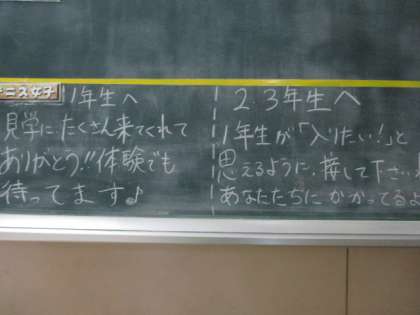 テニス女子
1年生へ
見学にたくさん来てくれて
ありがとう!!体験でも
待ってます♪
2.3年生へ
1年生が「入りたい!」と
思えるように、接して下さい。
あなたたちにかかってるよ